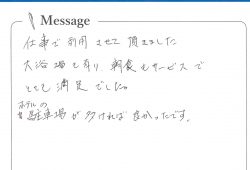 Message
仕事で利用させて頂きました
大浴場も有り 朝食もサービスで
とても満足でした。
ホテルの
駐車場が多ければ良かったです。